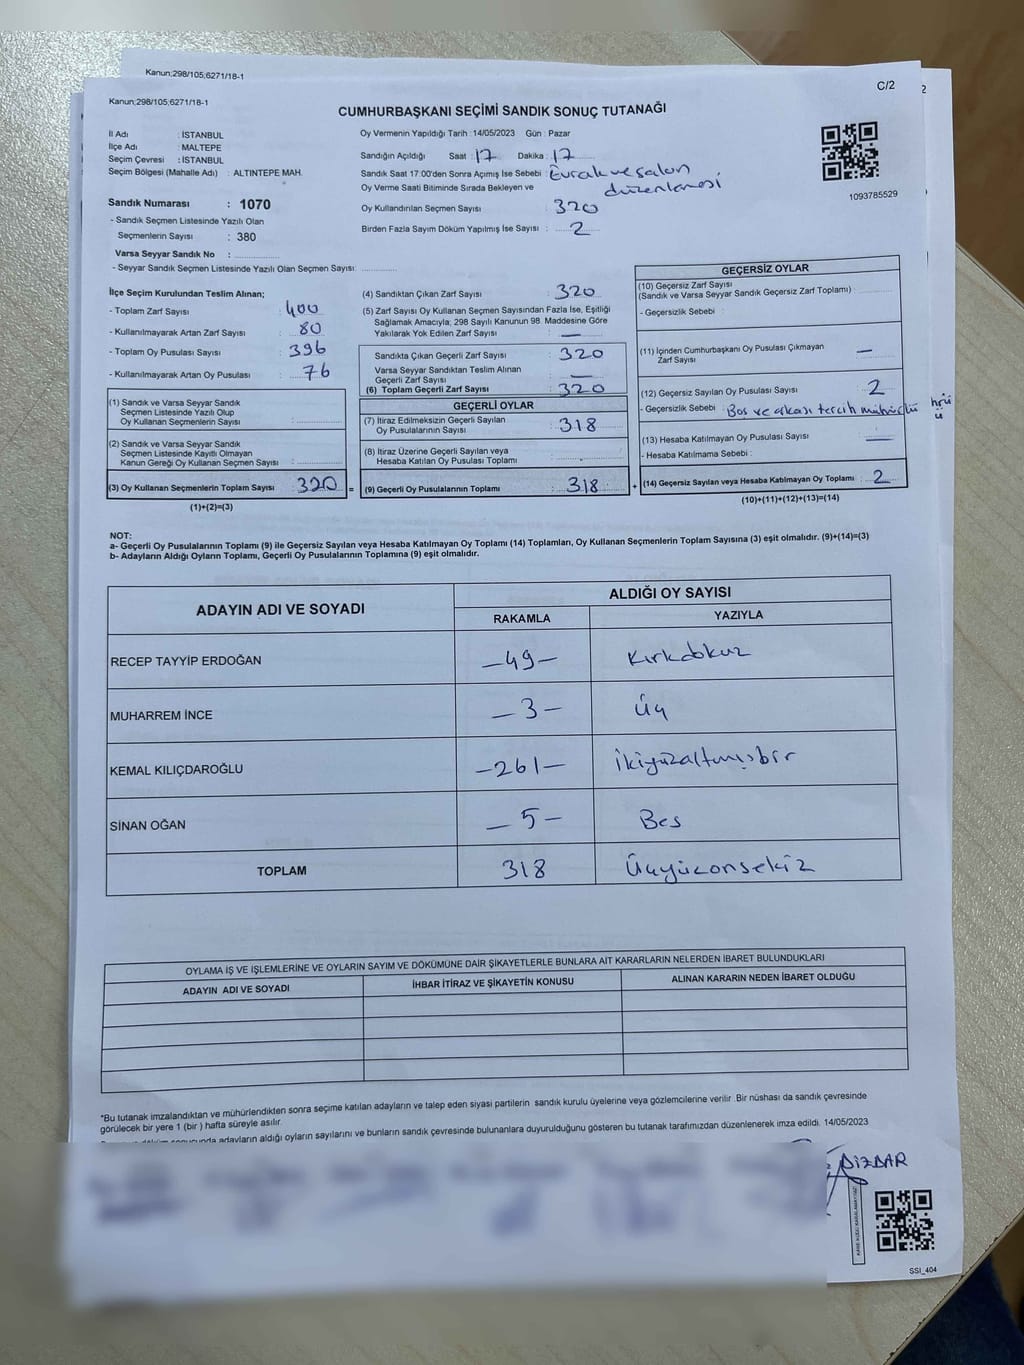 Kanun;298/105;6271/18-1
C/2
2
Kanun;298/105;6271/18-1
CUMHURBAŞKANI SEÇİMİ SANDIK SONUÇ TUTANAĞI
İl Adı : İSTANBUL
İlçe Adı : MALTEPE
Seçim Çevresi : İSTANBUL
Seçim Bölgesi (Mahalle Adı) : ALTINTEPE MAH.
Oy Vermenin Yapıldığı Tarih : 14/05/2023 Gün : Pazar
Sandığın Açıldığı Saat : 17 Dakika : 17
Sandık Saat 17:00'den Sonra Açımış İse Sebebi : Evrak ve salon
Oy Verme Saati Bitiminde Sırada Bekleyen ve düzenlemesi
Oy Kullandırılan Seçmen Sayısı : 320
Birden Fazla Sayım Döküm Yapılmış İse Sayısı : 2
1093785529
Sandık Numarası : 1070
- Sandık Seçmen Listesinde Yazılı Olan
Seçmenlerin Sayısı : 380
Varsa Seyyar Sandık No :
- Seyyar Sandık Seçmen Listesinde Yazılı Olan Seçmen Sayısı:
İlçe Seçim Kurulundan Teslim Alınan;
- Toplam Zarf Sayısı : 400
- Kullanılmayarak Artan Zarf Sayısı : 80
- Toplam Oy Pusulası Sayısı : 396
- Kullanılmayarak Artan Oy Pusulası : 76
(1) Sandık ve Varsa Seyyar Sandık
Seçmen Listesinde Yazılı Olup
Oy Kullanan Seçmenlerin Sayısı :
(2) Sandık ve Varsa Seyyar Sandık
Seçmen Listesinde Kayıtlı Olmayan
Kanun Gereği Oy Kullanan Seçmen Sayısı :
(3) Oy Kullanan Seçmenlerin Toplam Sayısı 320 =
(1)+(2)=(3)
(4) Sandıktan Çıkan Zarf Sayısı : 320
(5) Zarf Sayısı Oy Kullanan Seçmen Sayısından Fazla İse, Eşitliği
Sağlamak Amacıyla; 298 Sayılı Kanunun 98. Maddesine Göre
Yakılarak Yok Edilen Zarf Sayısı : —
Sandıkta Çıkan Geçerli Zarf Sayısı : 320
Varsa Seyyar Sandıktan Teslim Alınan
Geçerli Zarf Sayısı : —
(6) Toplam Geçerli Zarf Sayısı : 320
GEÇERLİ OYLAR
(7) İtiraz Edilmeksizin Geçerli Sayılan
Oy Pusulalarının Sayısı : 318
(8) İtiraz Üzerine Geçerli Sayılan veya
Hesaba Katılan Oy Pusulası Toplamı :
(9) Geçerli Oy Pusulalarının Toplamı : 318 +
GEÇERSİZ OYLAR
(10) Geçersiz Zarf Sayısı
(Sandık ve Varsa Seyyar Sandık Geçersiz Zarf Toplamı) :
- Geçersizlik Sebebi :
(11) İçinden Cumhurbaşkanı Oy Pusulası Çıkmayan
Zarf Sayısı : —
(12) Geçersiz Sayılan Oy Pusulası Sayısı : 2
- Geçersizlik Sebebi : Boş ve arkası tercih mühürlü
(13) Hesaba Katılmayan Oy Pusulası Sayısı : —
- Hesaba Katılmama Sebebi :
(14) Geçersiz Sayılan veya Hesaba Katılmayan Oy Toplamı : 2
(10)+(11)+(12)+(13)=(14)
NOT:
a- Geçerli Oy Pusulalarının Toplamı (9) ile Geçersiz Sayılan veya Hesaba Katılmayan Oy Toplamı (14) Toplamları, Oy Kullanan Seçmenlerin Toplam Sayısına (3) eşit olmalıdır. (9)+(14)=(3)
b- Adayların Aldığı Oyların Toplamı, Geçerli Oy Pusulalarının Toplamına (9) eşit olmalıdır.
ADAYIN ADI VE SOYADI ALDIĞI OY SAYISI
RAKAMLA YAZIYLA
RECEP TAYYİP ERDOĞAN —49— Kırkdokuz
MUHARREM İNCE —3— Üç
KEMAL KILIÇDAROĞLU —261— ikiyüzaltmışbir
SİNAN OĞAN —5— Beş
TOPLAM 318 Üçyüzonsekiz
OYLAMA İŞ VE İŞLEMLERİNE VE OYLARIN SAYIM VE DÖKÜMÜNE DAİR ŞİKAYETLERLE BUNLARA AİT KARARLARIN NELERDEN İBARET BULUNDUKLARI
ADAYIN ADI VE SOYADI İHBAR İTİRAZ VE ŞİKAYETİN KONUSU ALINAN KARARIN NEDEN İBARET OLDUĞU
*Bu tutanak imzalandıktan ve mühürlendikten sonra seçime katılan adayların ve talep eden siyasi partilerin sandık kurulu üyelerine veya gözlemcilerine verilir Bir nüshası da sandık çevresinde
görülecek bir yere 1 (bir ) hafta süreyle asılır.
adayların aldığı oyların sayılarını ve bunların sandık çevresinde bulunanlara duyurulduğunu gösteren bu tutanak tarafımızdan düzenlenerek imza edildi. 14/05/2023
DİZDAR
SSI_404